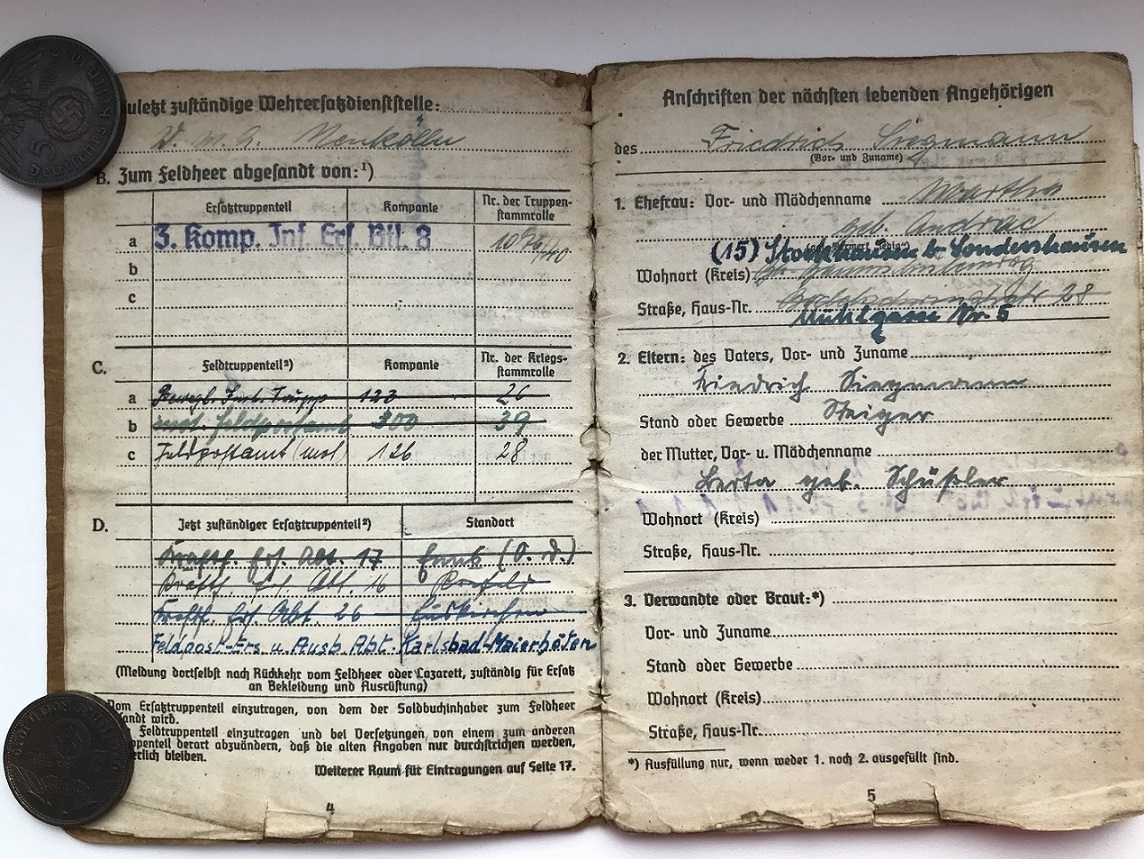 zuletzt zuständige Wehrersatzdienststelle:
W. M. A. Neukölln
B. Zum Feldheer abgesandt von:¹)
Ersatztruppenteil Kompanie Nr. der Truppen-
stammrolle
a 3. Komp. Inf. Ers. Btl. 8
b
c
C. Feldtruppenteil²) Kompanie Nr. der Kriegs-
stammrolle
a 123 26
b mot. Feldpostamt 300 39
c Feldpostamt (mot) 126 28
D. Jetzt zuständiger Ersatztruppenteil²) Standort
Kraftf. Ers. Abt. 17 Enns (O. d.)
Kraftf. Ers. Abt. 16
Kraftf. Ers. Abt. 26 Euskirchen
Feldpost-Ers. u. Ausb. Abt. Karlsbad-Maierhöfen
(Meldung dortselbst nach Rückkehr vom Feldheer oder Lazarett, zuständig für Ersatz
an Bekleidung und Ausrüstung)
Vom Ersatztruppenteil einzutragen, von dem der Soldbuchinhaber zum Feldheer
sandt wird.
Feldtruppenteil einzutragen und bei Versetzungen von einem zum anderen
ppenteil derart abzuändern, daß die alten Angaben nur durchstrichen werden,
erlich bleiben.
Weiterer Raum für Eintragungen auf Seite 17.
4
Anschriften der nächsten lebenden Angehörigen
des Friedrich Siegmann
(Vor- und Zuname)
1. Ehefrau: Vor- und Mädchenname Martha
geb. Andrae
(15) Stockhausen b. Sondershausen
Wohnort (Kreis)
Straße, Haus-Nr. 28
Mühlgasse Nr. 5
2. Eltern: des Vaters, Vor- und Zuname
Friedrich Siegmann
Stand oder Gewerbe Steiger
der Mutter, Vor- u. Mädchenname
Berta geb. Schüßler
Wohnort (Kreis)
Straße, Haus-Nr.
3. Verwandte oder Braut:*)
Vor- und Zuname
Stand oder Gewerbe
Wohnort (Kreis)
Straße, Haus-Nr.
*) Ausfüllung nur, wenn weder 1. noch 2. ausgefüllt sind.
5